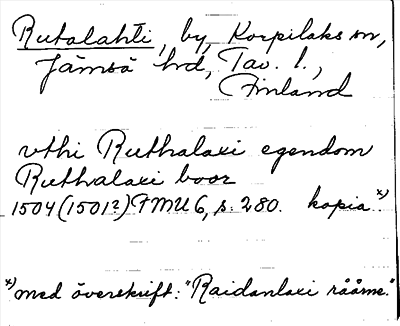 Rutalahti, by, Korpilaks sn,
Jämsä hd, Tav. l.,
Finland
vthi Ruthalaxi egendom
Ruthalaxi boor
1504 (1501?) FMU 6, s. 280. kopia.*)
*) med överskrift: "Raidanlaxi rååme."